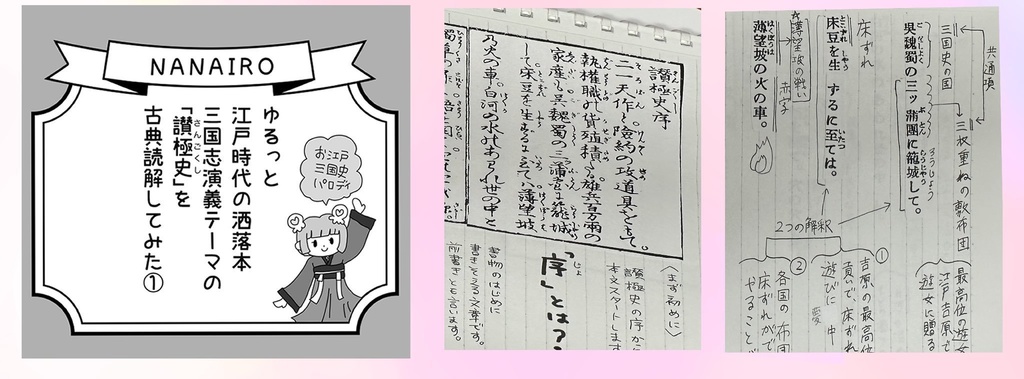 NANAIRO
ゆるっと
江戸時代の洒落本
三国志演義テーマの
さんごくし
「讃極史」を
古典読解してみた①
お江戸
三国史
パロディ
讃極史序
二一天作と儉約の攻道具をもて。
して床豆を生ずるに至てハ薄望坡
〈まず初めに〉
讃極史の序から
本文スタートします
じょ
「序」とは?
書物のはじめに
書きそえる文章です。
前書きとも言います。
共通項
三国史の国
三枚重ねの敷布団
ごぎしよく
ろうじやう
呉魏蜀の三ッ蒲團に籠城して。
ろうじょう
最高位の遊女
江戸吉原で
遊女に贈る
床ずれ
とこずれ
しやう
いたつ
床豆を生ずるに至ては。
2つの解釈
①
吉原の最高位
貢いで、床ずれ
遊びに
中
②
各国の布団
床ずれがで
やること
薄望坡の戦い
赤字
はくぼうは
薄望坡の火の車。